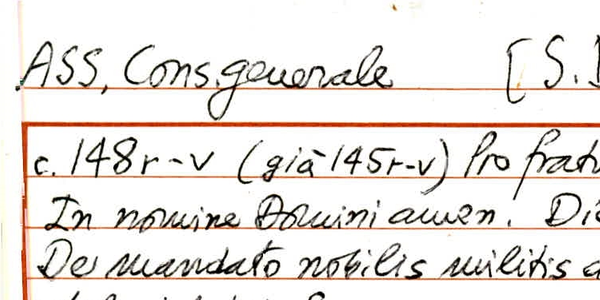 ASS, Cons. generale [S.
c. 148r-v (già 145r-v) Pro
In nomine Domini amen.
De mandato nobilis militis